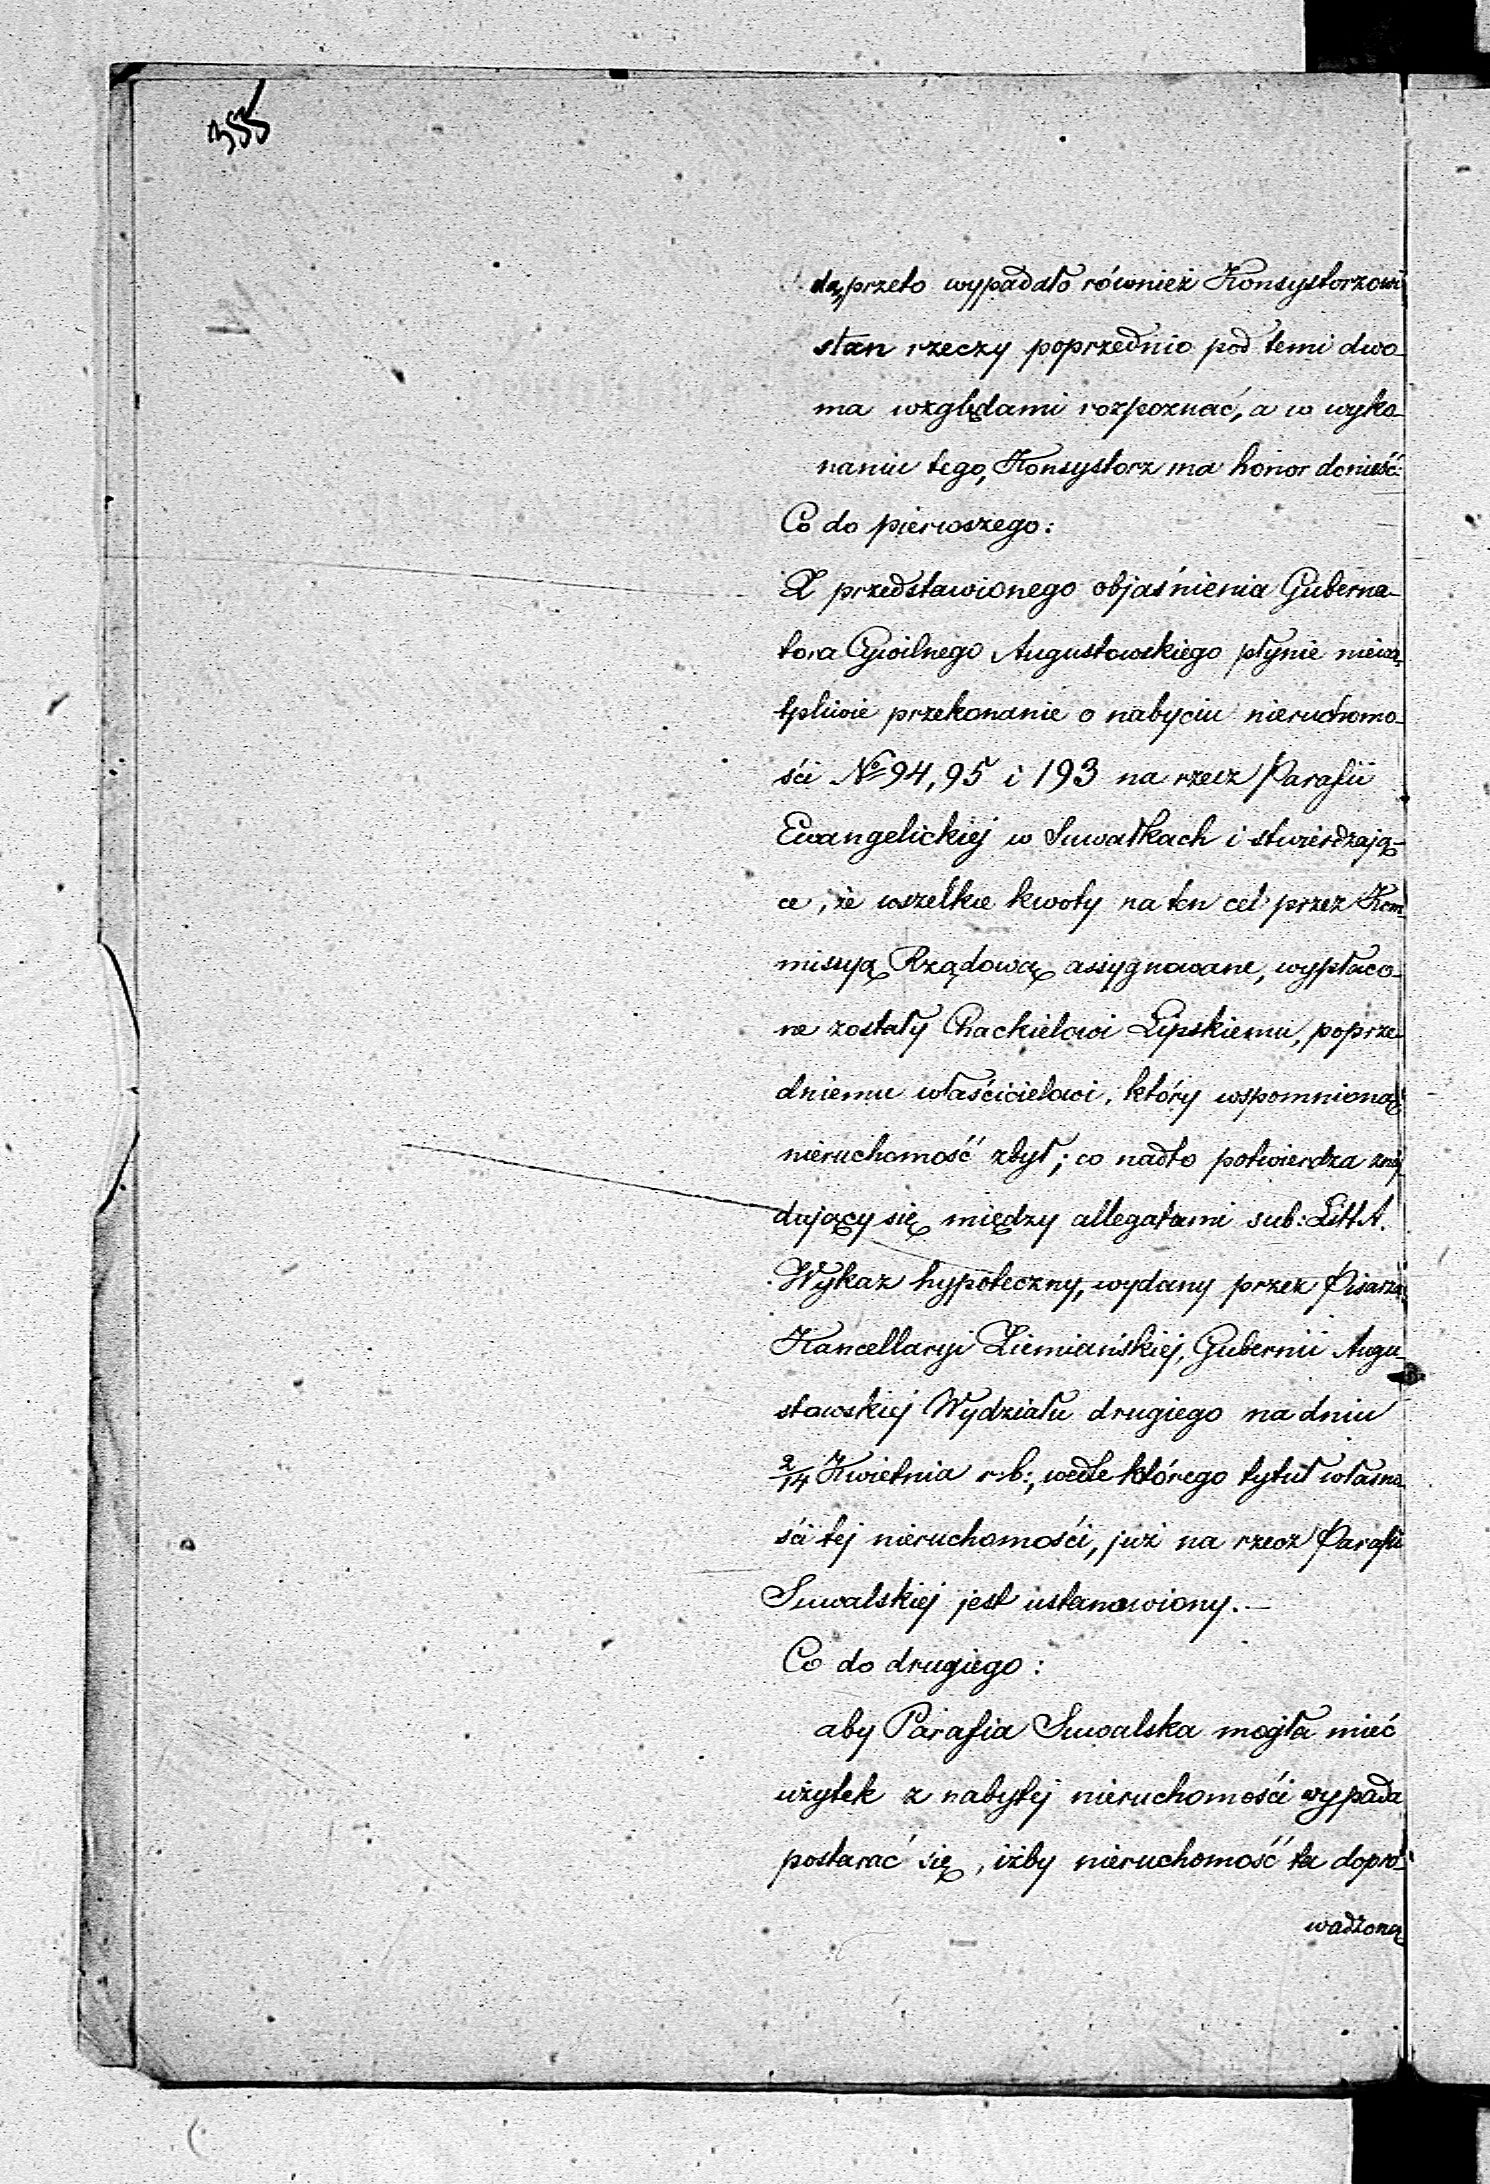 355
da, przeto wypadało również Konsystorzowi
stan rzeczy poprzednio pod temi dwo-
ma względami rozpoznać, a w wyko-
naniu tego, Konsystorz ma honor donieść:
Co do pierwszego:
Z przedstawionego objaśnienia Guberna-
tora Cywilnego Augustowskiego płynie niewą-
tpliwie przekonanie o nabyciu nieruchomo-
ści No 94, 95 i 193 na rzecz Parafii
Ewangelickiej w Suwałkach i stwierdzają-
ce, że wszelkie kwoty na ten cel przez Kom-
missyą Rządową assygnowane, wypłaco-
ne zostały Chackielowi Lipskiemu, poprze-
dniemu właścicielowi, który wspomnioną
nieruchomość zbył; co nadto potwierdza znaj-
dujący się między allegatami sub: Litt A.
Wykaz hypoteczny, wydany przez Pisarza
Kancellaryi Ziemiańskiej, Gubernii Augu-
stowskiej Wydziału drugiego na dniu
2/14 Kwietnia r.b:, wedle którego tytuł własno-
ści tej nieruchomości, już na rzecz Parafii
Suwalskiej jest ustanowiony. —
Co do drugiego:
aby Parafia Suwalska mogła mieć
użytek z nabytej nieruchomości wypada
postarać się, iżby nieruchomość ta dopro-
wadzoną